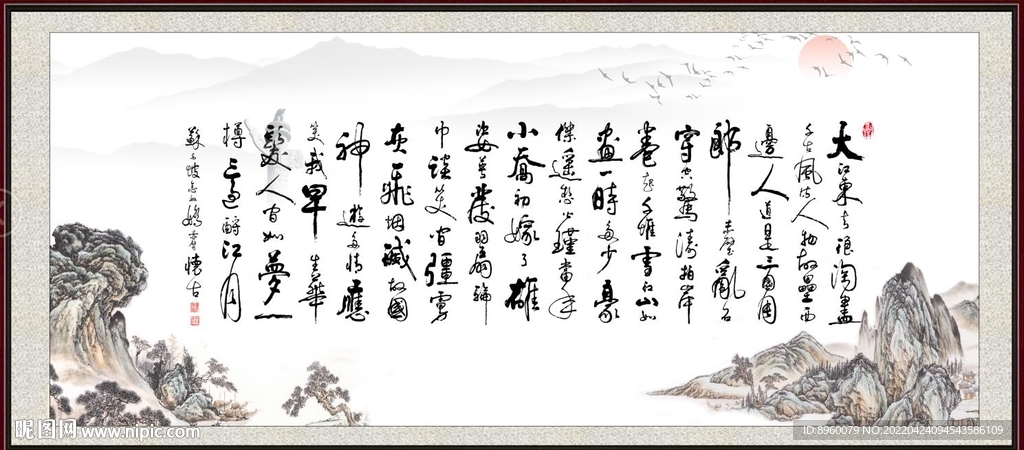 大江東去浪淘盡
千古風流人物故壘西
邊人道是三國周
郎赤壁亂石
穿空驚濤拍岸
卷起千堆雪江山如
畫一時多少豪
傑遥想公瑾當年
小喬初嫁了雄
姿英發羽扇綸
巾談笑间彊虜
灰飛烟滅故國
神遊多情應
笑我早生華
髮人间如夢一
樽還酹江月
蘇东坡念奴嬌懷古
昵图网 www.nipic.com
ID:8960079 NO:20220424094543586109